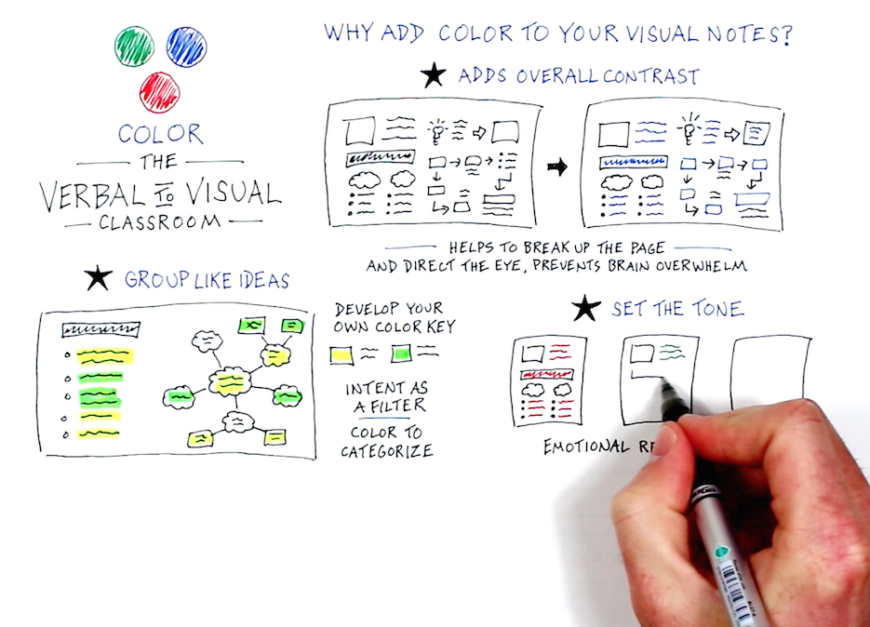 COLOR
THE
VERBAL TO VISUAL
CLASSROOM
WHY ADD COLOR TO YOUR VISUAL NOTES?
★ ADDS OVERALL CONTRAST
HELPS TO BREAK UP THE PAGE
AND DIRECT THE EYE, PREVENTS BRAIN OVERWHELM
★ GROUP LIKE IDEAS
DEVELOP YOUR
OWN COLOR KEY
INTENT AS
A FILTER
COLOR TO
CATEGORIZE
★ SET THE TONE
EMOTIONAL